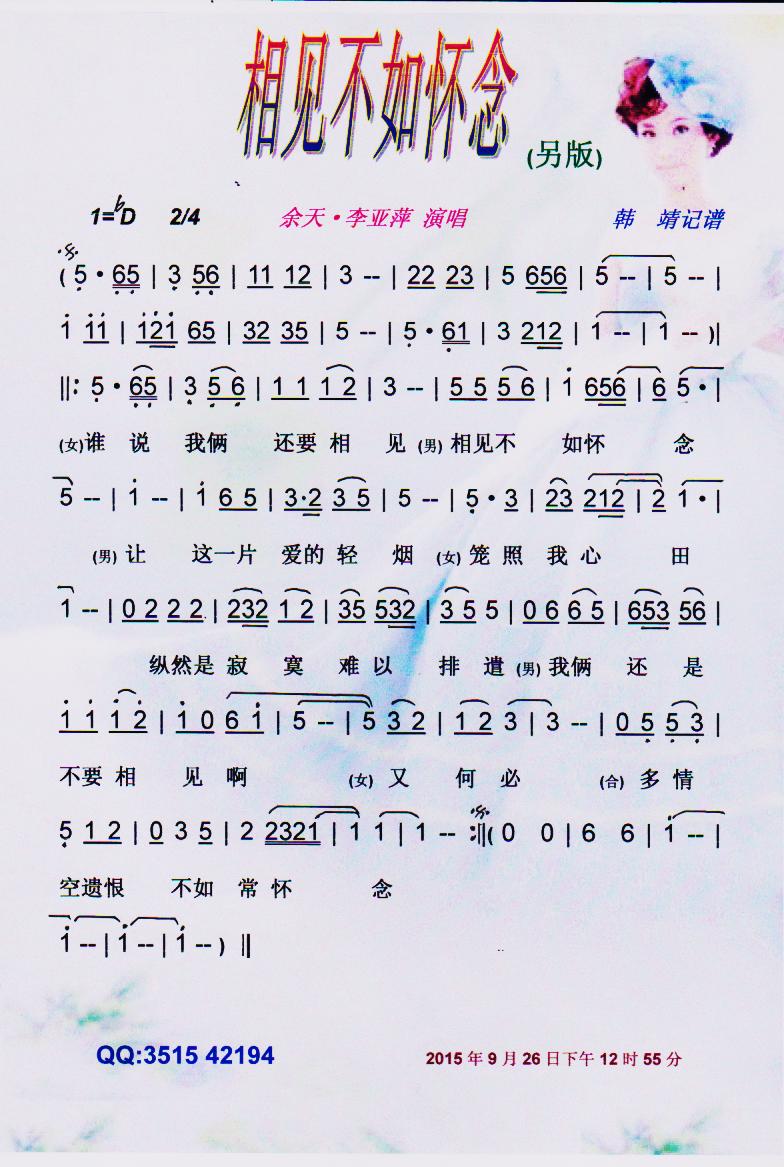 相见不如怀念
(另版)
1=♭D 2/4 余天·李亚萍 演唱 韩 靖记谱
( 5 · 65 | 3 56 | 11 12 | 3 -- | 22 23 | 5 656 | 5 -- | 5 -- |
1 11 | 121 65 | 32 35 | 5 -- | 5 · 61 | 3 212 | 1 -- | 1 -- )||
||: 5 · 65 | 3 5 6 | 1 1 1 2 | 3 -- | 5 5 5 6 | 1 656 | 6 5 · |
(女)谁 说 我俩 还要 相 见 (男) 相见不 如怀 念
5 -- | 1 -- | 1 6 5 | 3·2 3 5 | 5 -- | 5 · 3 | 23 212 | 2 1 · |
(男) 让 这一片 爱的 轻 烟 (女) 笼 照 我 心 田
1 -- | 0 2 2 2 | 232 1 2 | 35 532 | 3 5 5 | 0 6 6 5 | 653 56 |
纵然是 寂 寞 难 以 排 遣 (男) 我俩 还 是
1 1 1 2 | 1 0 6 1 | 5 -- | 5 3 2 | 1 2 3 | 3 -- | 0 5 5 3 |
不要 相 见 啊 (女) 又 何 必 (合) 多 情
5 1 2 | 0 3 5 | 2 2321 | 1 1 | 1 -- :||( 0 0 | 6 6 | 1 -- |
空遗恨 不如 常 怀 念
1 -- | 1 -- | 1 -- ) ||
QQ:3515 42194 2015 年 9 月 26 日下午 12 时 55 分